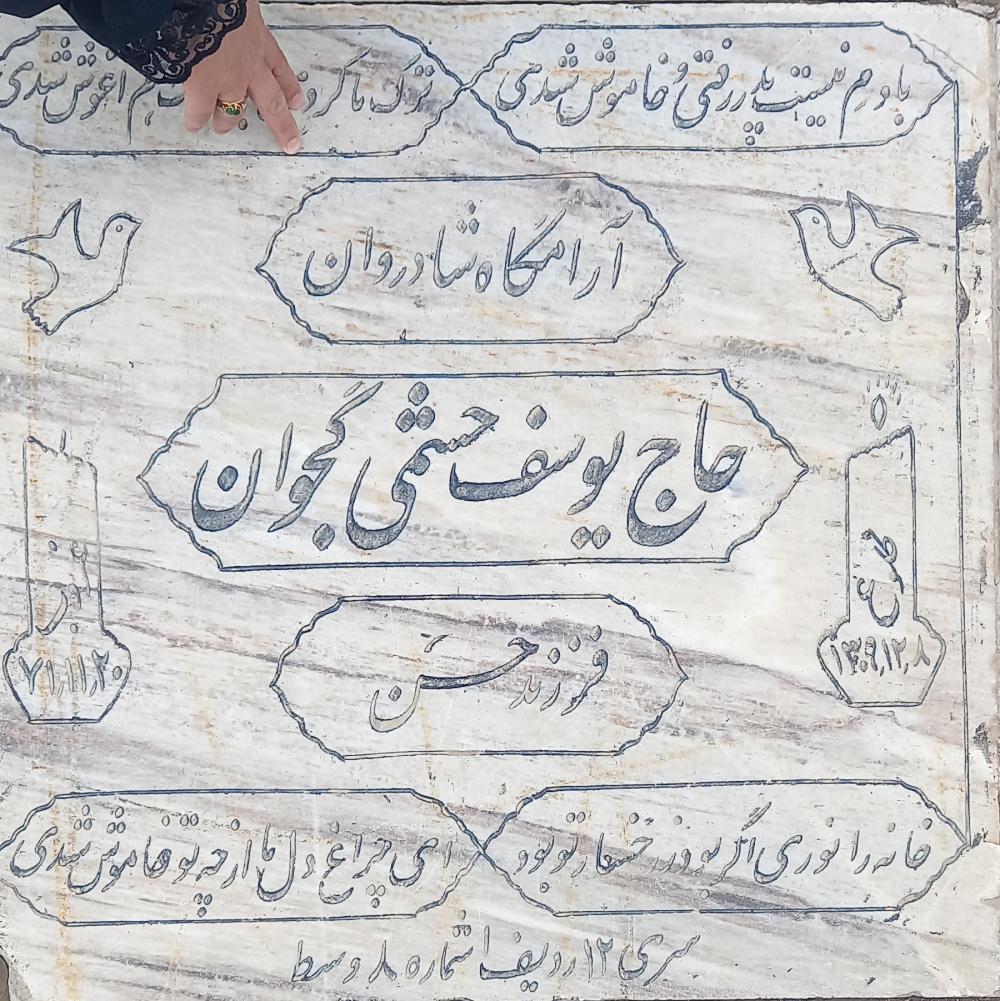 باورم نیست پدر رفتی و خاموش شدی
ترک ما کردی هم آغوش شدی
آرامگاه شادروان
حاج یوسف حشمی گجوان
فرزند حسن
طلوع
۱۳۰۹،۱۲،۸
۷۱،۱۱،۲۰
خانه را نوری اگر بود ز رخسار تو بود
ای چراغ دل ما از چه تو خاموش شدی
سری ۱۲ ردیف ۱ شماره ۸ وسط